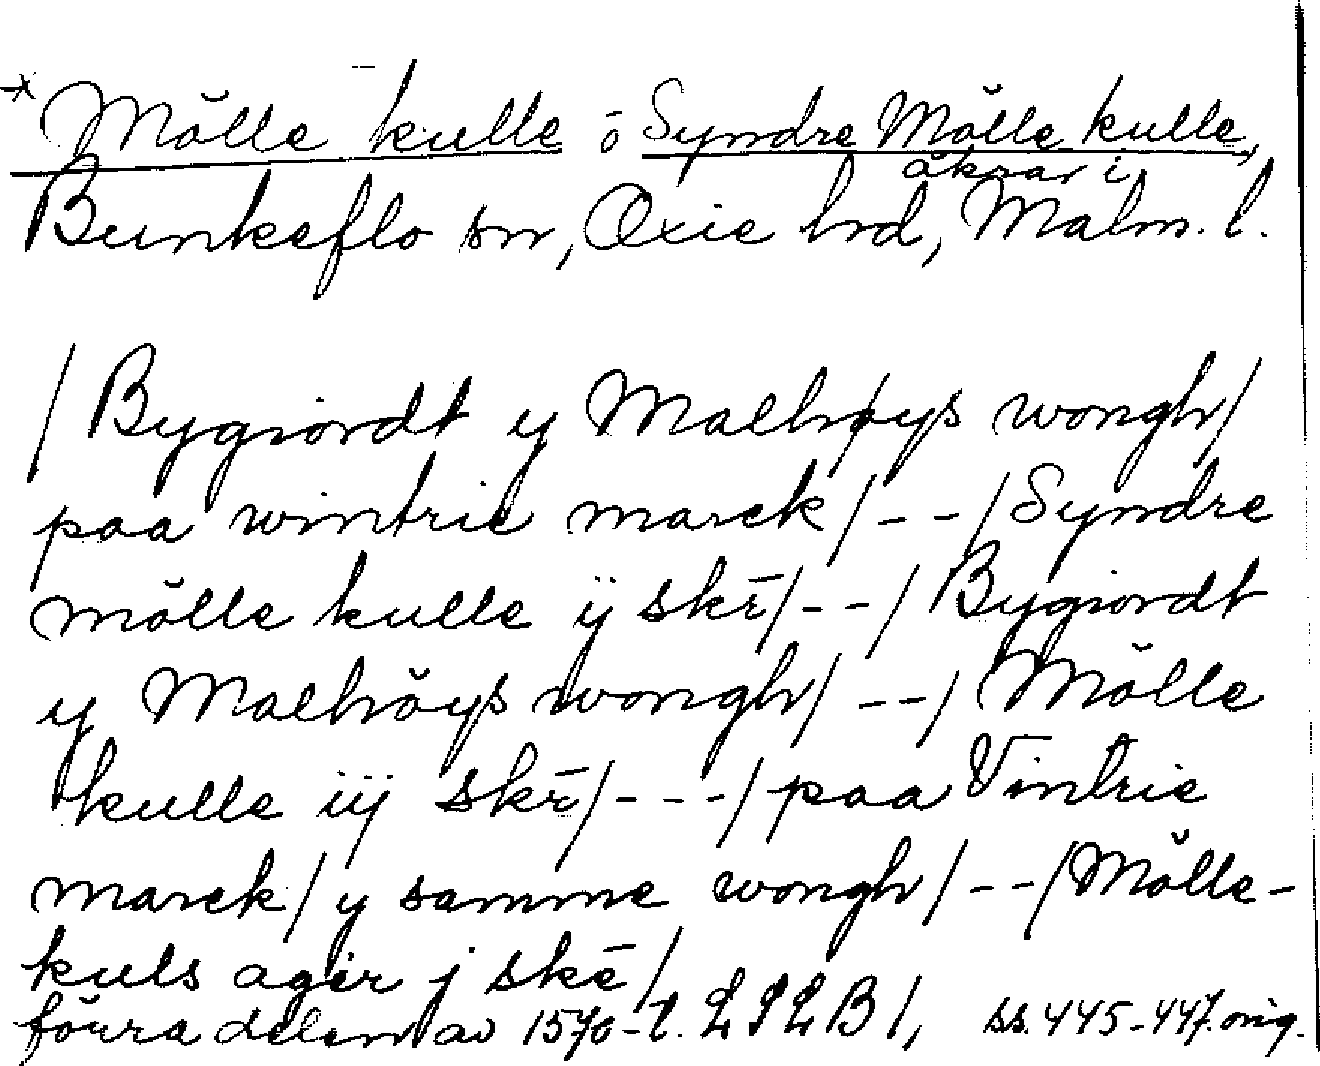 * Mölle kulle o Syndre Mölle kulle,
åkrar i
Bunkeflo sn, Oxie hd, Malm. l.
/ Bygiordt y Malhøys wongh /
paa wintrie marck / - - / Syndre
mölle kulle ÿ skē / - - / Bygiordt
y Malhöys wongh / - - / Mölle
kulle iij skē / - - - / paa Vintrie
marck / y samme wongh / - - / Mölle-
kuls ager j skē /
förra delen av 1570-t. LPLB 1, ss. 445-447. orig.